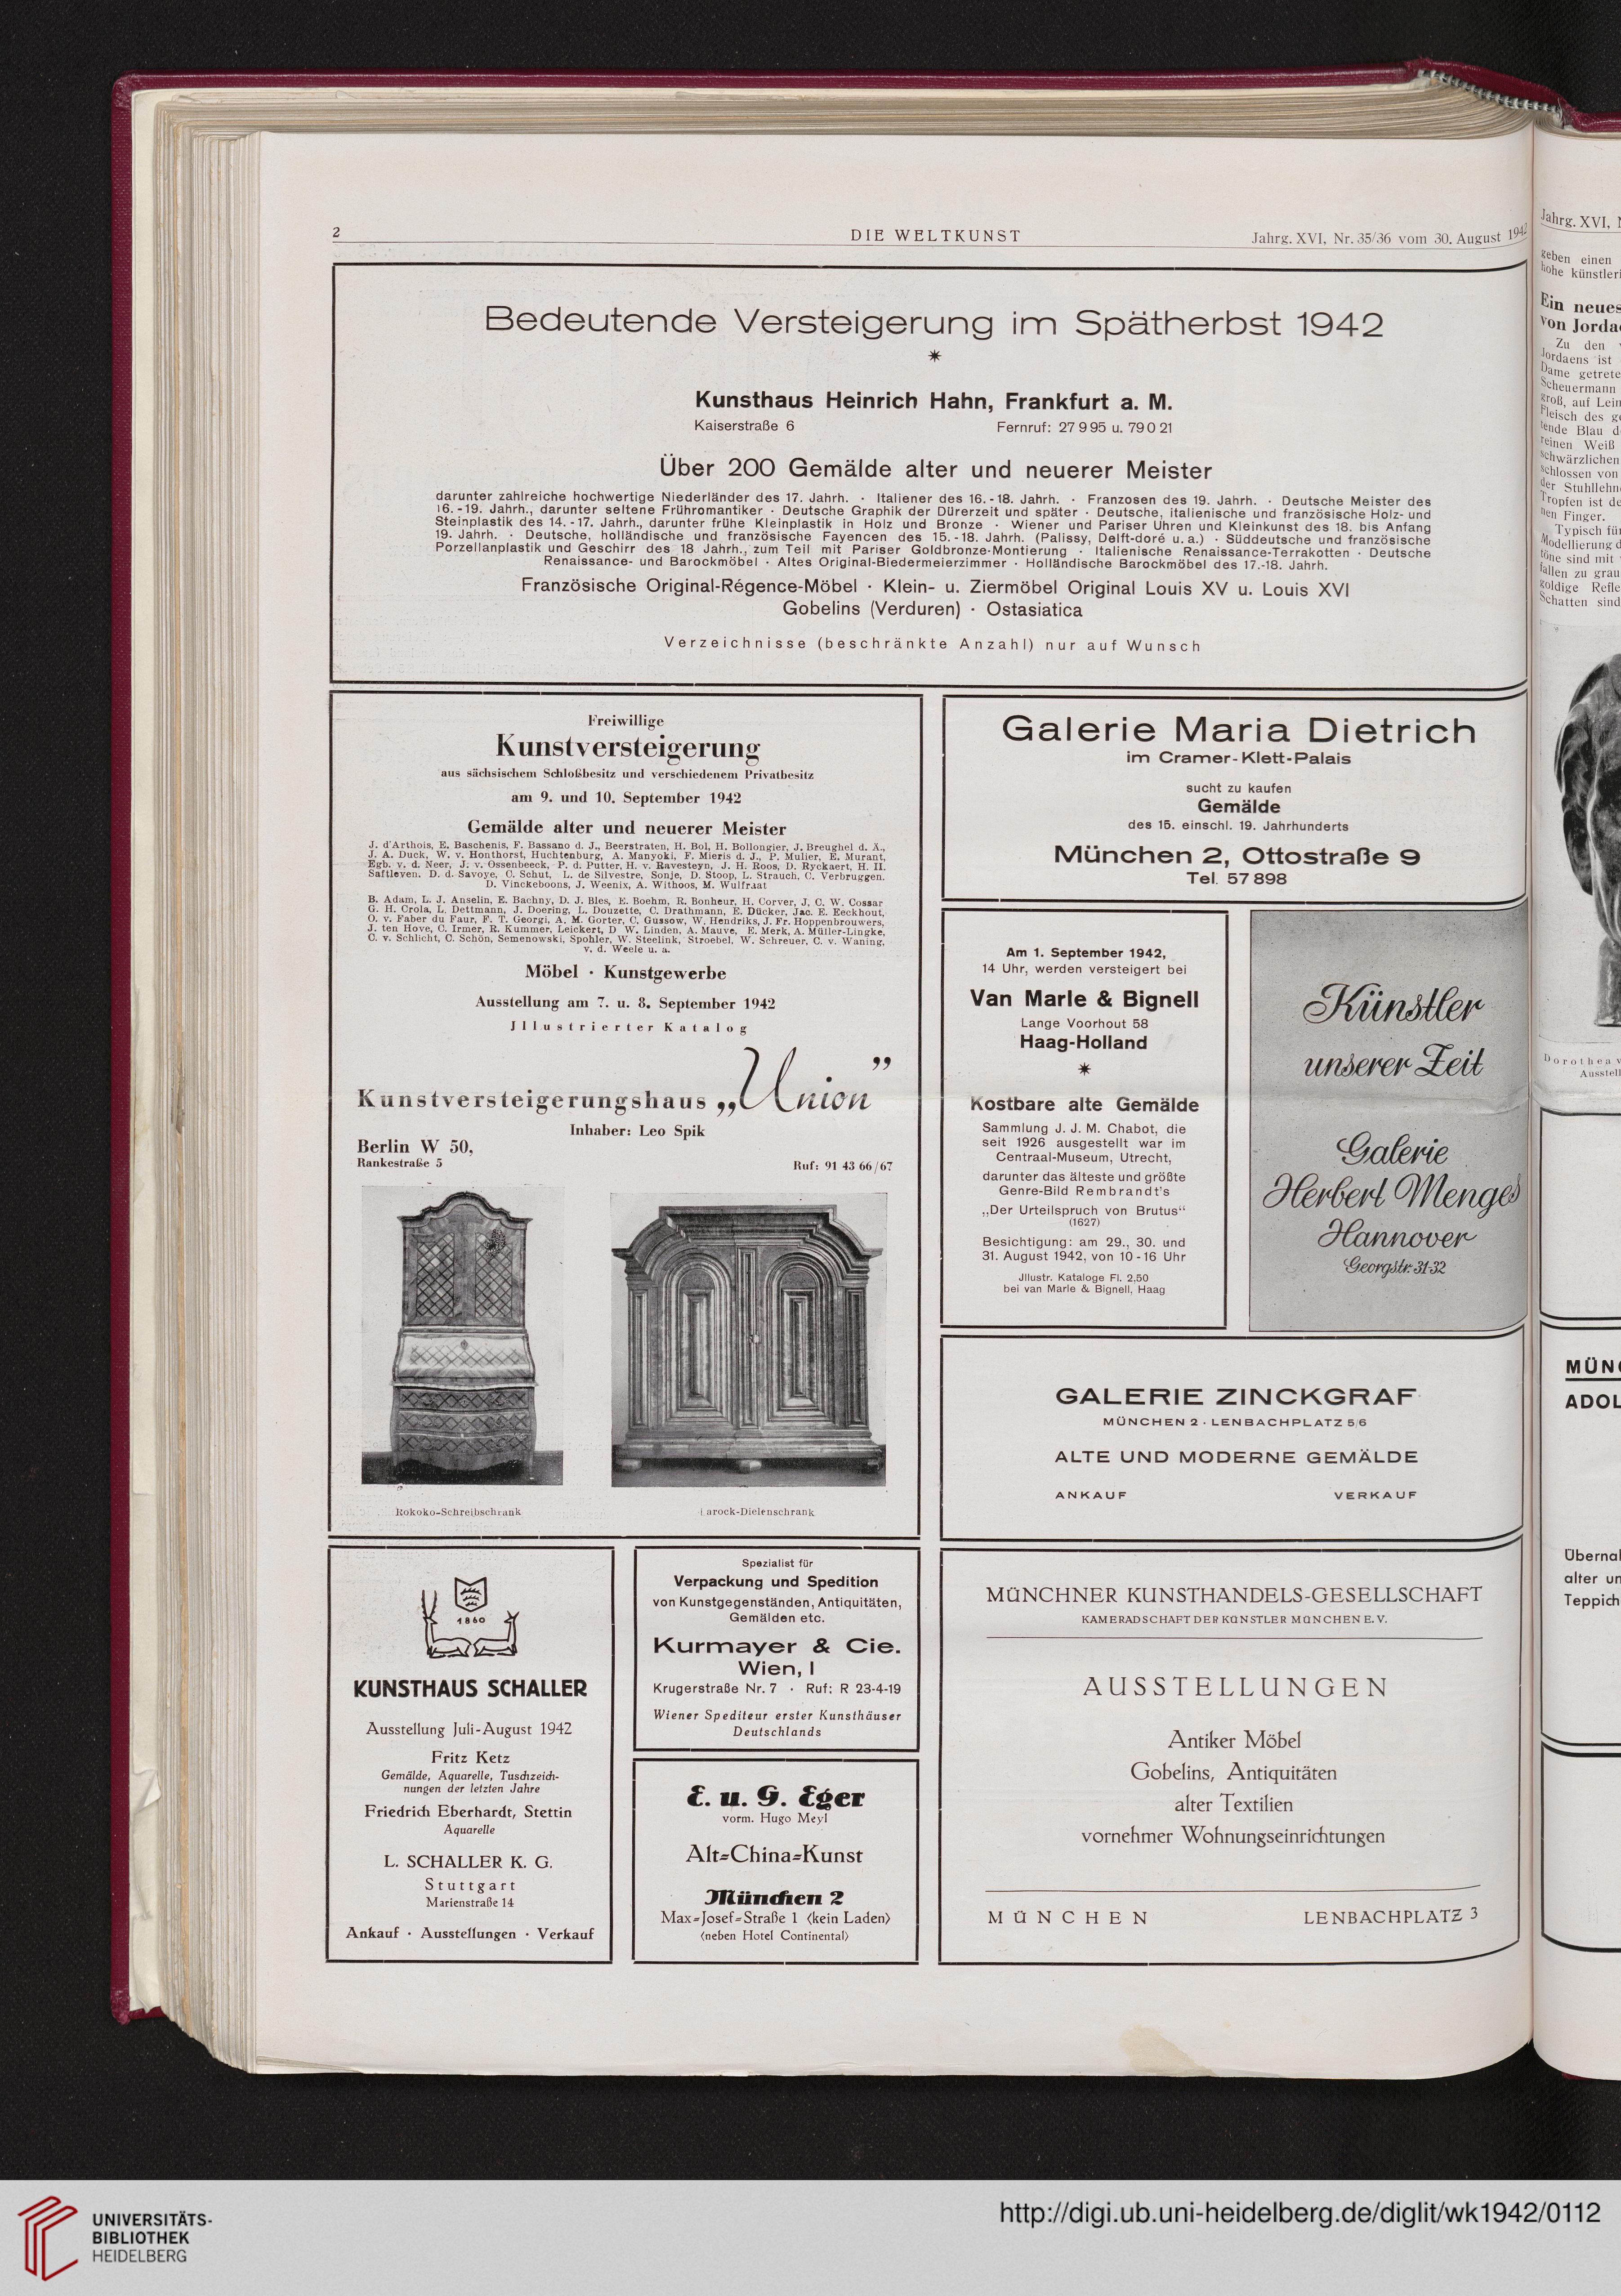 2
DIE WELTKUNST
Jahrg. XVI, Nr. 35/36 vom 30. August 1942
Bedeutende Versteigerung im Spätherbst 1942
Kunsthaus Heinrich Hahn, Frankfurt a. M.
Kaiserstraße 6
Fernruf: 27 9 95 u. 79 0 21
Über 200 Gemälde alter und neuerer Meister
darunter zahlreiche hochwertige Niederländer des 17. Jahrh. · Italiener des 16.-18. Jahrh. · Franzosen des 19. Jahrh. · Deutsche Meister des
16.-19. Jahrh., darunter seltene Frühromantiker · Deutsche Graphik der Dürerzeit und später · Deutsche, italienische und französische Holz- und
Steinplastik des 14.-17. Jahrh., darunter frühe Kleinplastik in Holz und Bronze · Wiener und Pariser Uhren und Kleinkunst des 18. bis Anfang
19. Jahrh. · Deutsche, holländische und französische Fayencen des 15.-18. Jahrh. (Palissy, Delft-doré u. a.) · Süddeutsche und französische
Porzellanplastik und Geschirr des 18 Jahrh., zum Teil mit Pariser Goldbronze-Montierung · Italienische Renaissance-Terrakotten · Deutsche
Renaissance- und Barockmöbel · Altes Original-Biedermeierzimmer · Holländische Barockmöbel des 17.-18. Jahrh.
Französische Original-Régence-Möbel · Klein- u. Ziermöbel Original Louis XV u. Louis XVI
Gobelins (Verduren) · Ostasiatica
Verzeichnisse (beschränkte Anzahl) nur auf Wunsch
Freiwillige
Kunstversteigerung
aus sächsischem Schloßbesitz und verschiedenem Privatbesitz
am 9. und 10. September 1942
Gemälde alter und neuerer Meister
J. d'Arthois, E. Baschenis, F. Bassano d. J., Beerstraten, H. Bol, H. Bollongier, J. Breughel d. Ä.,
J. A. Duck, W. v. Honthorst, Huchtenburg, A. Manyoki, F. Mieris d. J., P. Mulier, E. Murant,
Egb. v. d. Neer, J. v. Ossenbeeck, P. d. Putter, H. v. Ravesteyn, J. H. Roos, D. Ryckaert, H. II.
Saftleven, D. d. Savoye, C. Schut, L. de Silvestre, Sonje, D. Stoop, L. Strauch, C. Verbruggen.
D. Vinckeboons, J. Weenix, A. Withoos, M. Wulfraat
B. Adam, L. J. Anselin, E. Bachny, D. J. Bles, E. Boehm, R. Bonheur, H. Corver, J. C. W. Cossar
G. H. Crola, L. Dettmann, J. Doering, L. Douzette, C. Drathmann, E. Dücker, Jac. E. Eeckhout,
O. v. Faber du Faur, F. T. Georgi, A. M. Gorter, C. Gussow, W. Hendriks, J. Fr. Hoppenbrouwers,
J. ten Hove, C. Irmer, R. Kummer, Leickert, D W. Linden, A. Mauve, E. Merk, A. Müller-Lingke,
C. v. Schlicht, C. Schön, Semenowski, Spohler, W. Steelink, Stroebel, W. Schreuer, C. v. Waning,
v. d. Weele u. a.
Möbel · Kunstgewerbe
Ausstellung am 7. u. 8. September 1942
Jllustrierter Katalog
Kunstversteigerungshaus „Union”
Inhaber: Leo Spik
Berlin W 50,
Rankestraße 5
Ruf: 91 43 66/67
Rokoko-Schreibschrank
arock-Dielenschrank
Galerie Maria Dietrich
im Cramer-Klett-Palais
sucht zu kaufen
Gemälde
des 15. einschl. 19. Jahrhunderts
München 2, Ottostraße 9
Tel. 57 898
Am 1. September 1942,
14 Uhr, werden versteigert bei
Van Marle & Bignell
Lange Voorhout 58
Haag-Holland
Kostbare alte Gemälde
Sammlung J. J. M. Chabot, die
seit 1926 ausgestellt war im
Centraal-Museum, Utrecht,
darunter das älteste und größte
Genre-Bild Rembrandt's
„Der Urteilspruch von Brutus“
(1627)
Besichtigung: am 29., 30. und
31. August 1942, von 10-16 Uhr
Jllustr. Kataloge Fl. 2,50
bei van Marle & Bignell, Haag
Künstler
unserer Zeit
Galerie
Herbert Menges
Hannover
Georgstr. 31-32
GALERIE ZINCKGRAF
MÜNCHEN 2 · LENBACHPLATZ 5/6
ALTE UND MODERNE GEMÄLDE
ANKAUF
VERKAUF
1860
KUNSTHAUS SCHALLER
Ausstellung Juli-August 1942
Fritz Ketz
Gemälde, Aquarelle, Tuschzeich-
nungen der letzten Jahre
Friedrich Eberhardt, Stettin
Aquarelle
L. SCHALLER K. G.
Stuttgart
Marienstraße 14
Ankauf · Ausstellungen · Verkauf
Spezialist für
Verpackung und Spedition
von Kunstgegenständen, Antiquitäten,
Gemälden etc.
Kurmayer & Cie.
Wien, I
Krugerstraße Nr. 7 · Ruf: R 23-4-19
Wiener Spediteur erster Kunsthäuser
Deutschlands
E. u. G. Eger
vorm. Hugo Meyl
Alt-China-Kunst
München 2
Max-Josef-Straße 1 (kein Laden)
(neben Hotel Continental)
MÜNCHNER KUNSTHANDELS-GESELLSCHAFT
KAMERADSCHAFT DER KÜNSTLER MÜNCHEN E. V.
AUSSTELLUNGEN
Antiker Möbel
Gobelins, Antiquitäten
alter Textilien
vornehmer Wohnungseinrichtungen
MÜNCHEN
LENBACHPLATZ 3
Jahrg. XVI,
geben einen
hohe
Ein neues
von
Zu den
Jordaens ist
Dame
Scheuermann
groß, auf
Fleisch des
Blau
reinen Weiß
schwärzlichen
schlossen von
der
Tropfen ist
Finger.
Typisch
töne sind mit
fallen zu grau
goldige
Schatten sind
Dorothea
alter
UNIVERSITÄTS-
BIBLIOTHEK
HEIDELBERG
http://digi.ub.uni-heidelberg.de/diglit/wk1942/0112